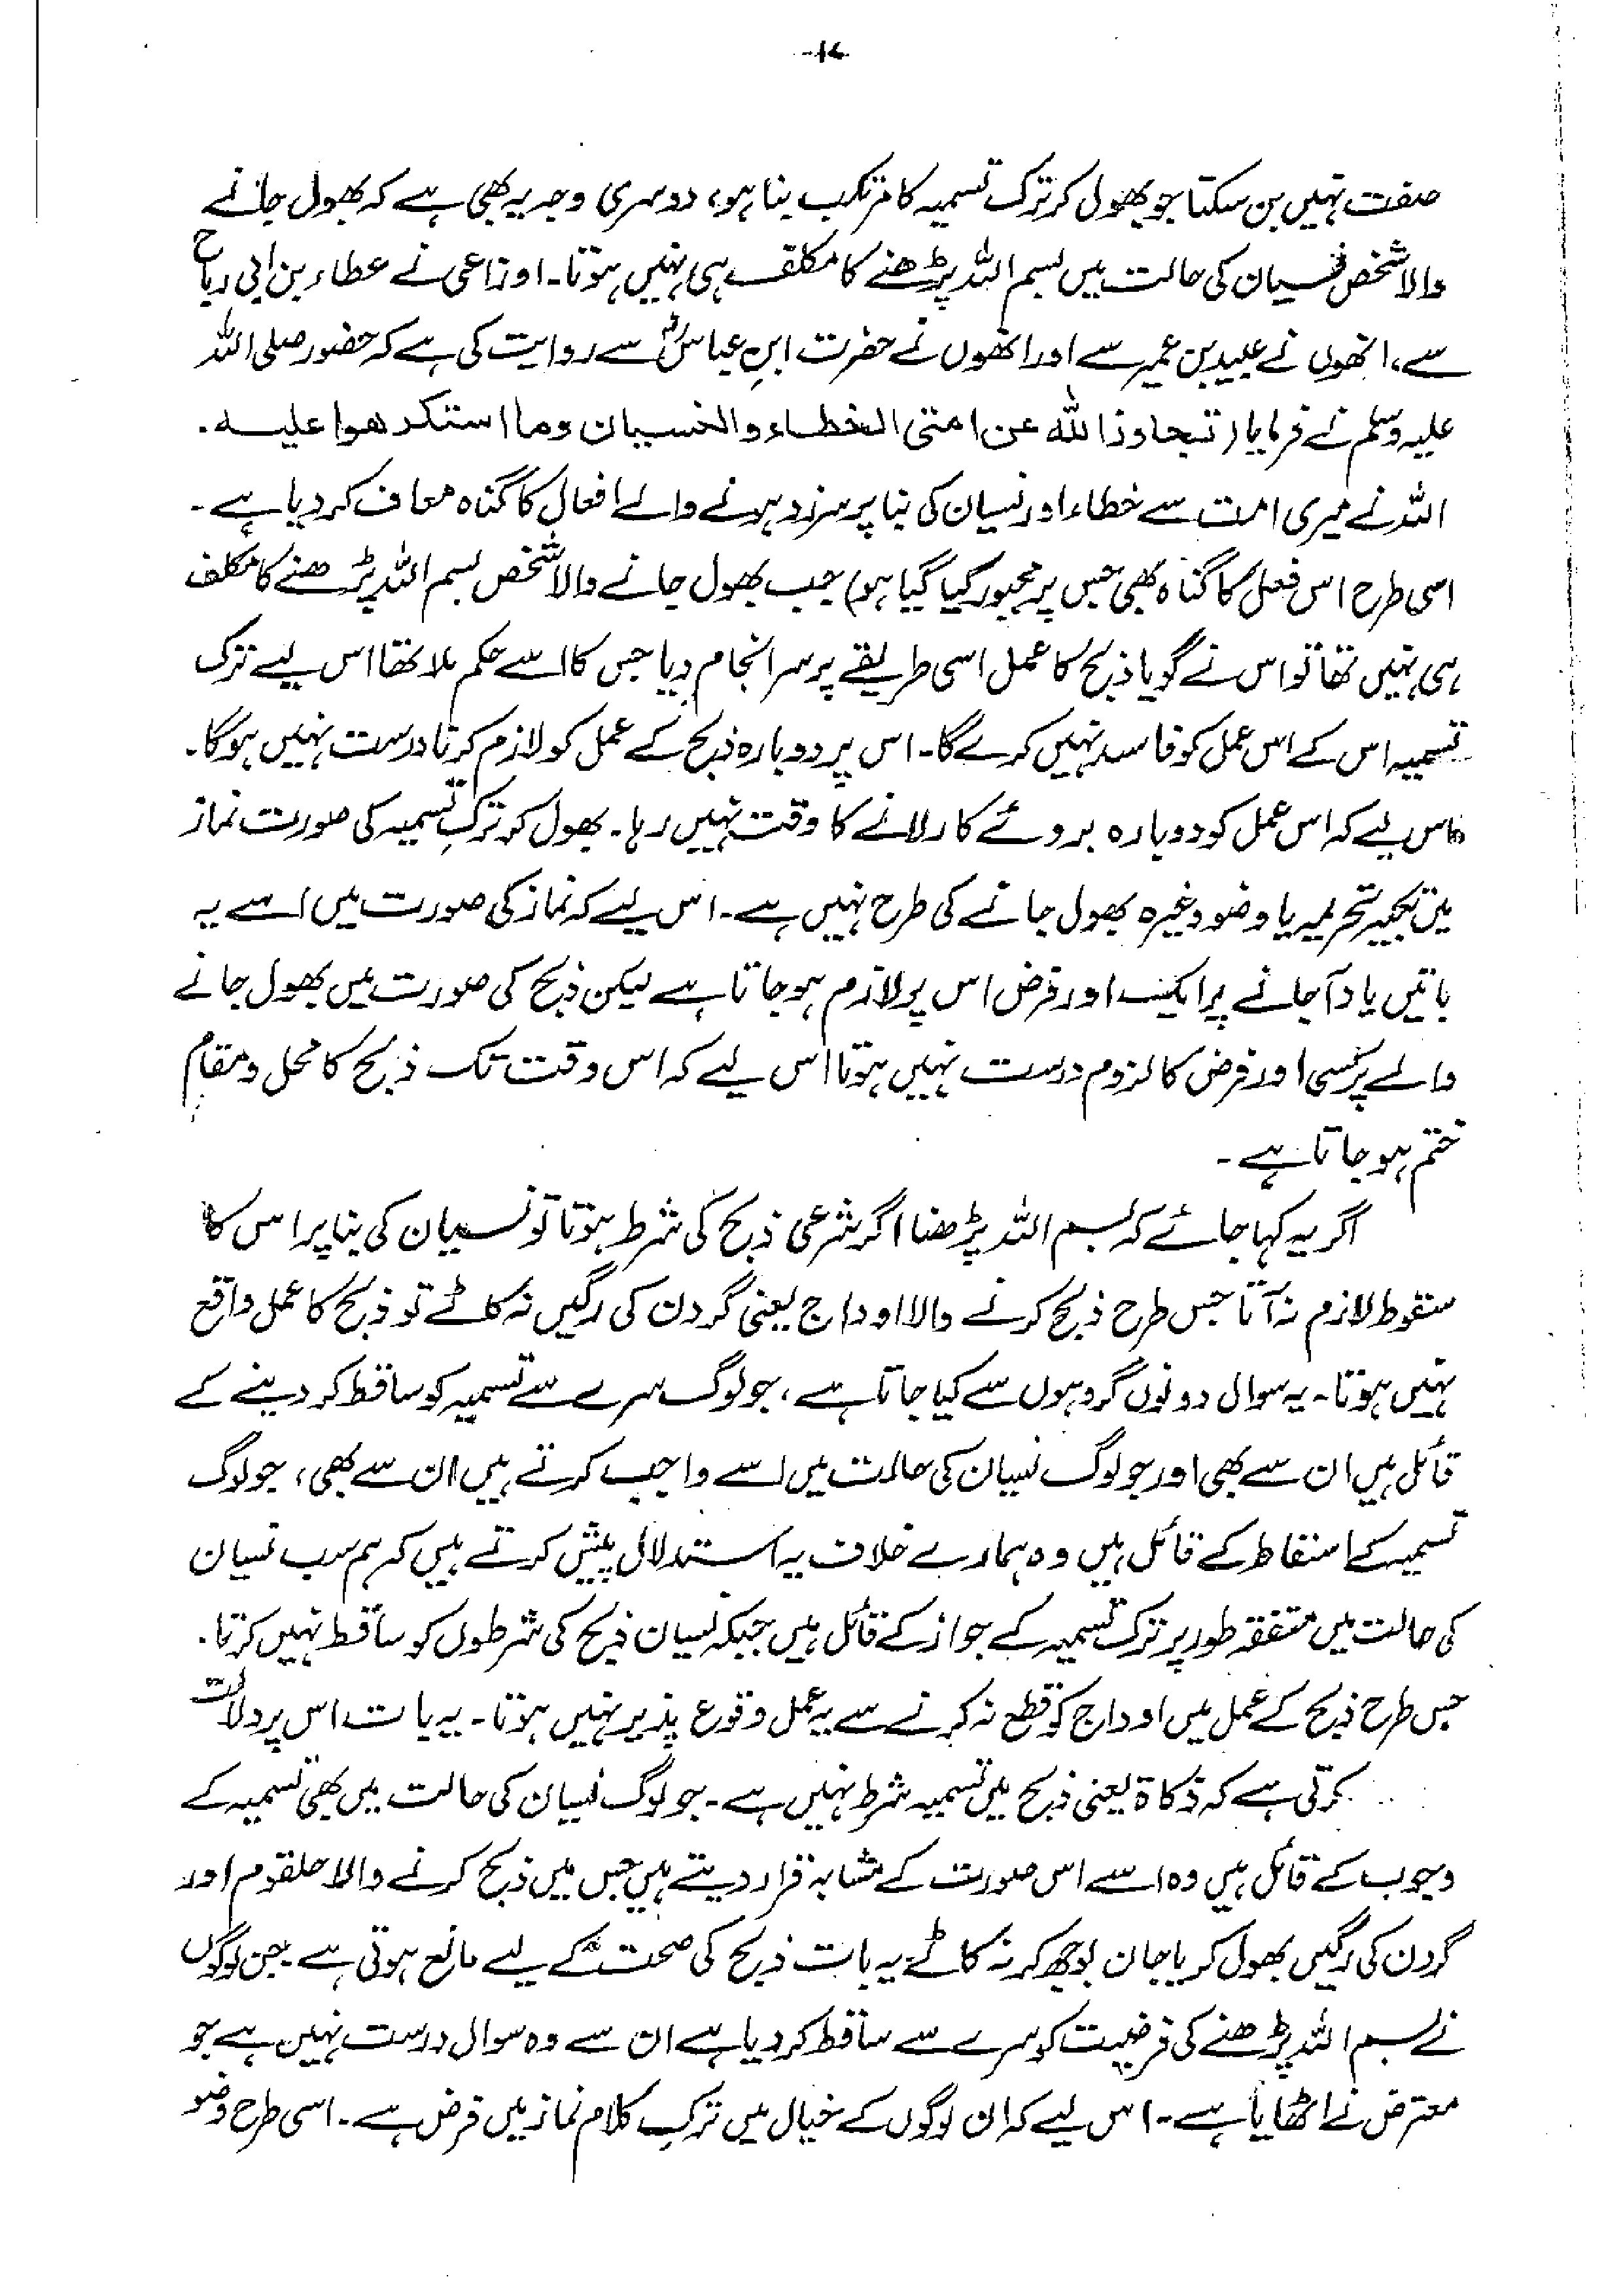 -۱۷-
صفت نہیں بن سکتا جو بھول کر ترک تسمیہ کا مرتکب بنا ہو، دوسری وجہ یہ بھی ہے کہ بھول جانے
والا شخص نسیان کی حالت میں بسم اللہ پڑھنے کا مکلف ہی نہیں ہوتا۔ اوزاعی نے عطاء بن ابی رباح
سے، انھوں نے عبید بن عمیر سے اور انھوں نے حضرت ابنِ عباسؓ سے روایت کی ہے کہ حضور صلی اللہ
علیہ وسلم نے فرمایا (تجاوز الله عن امتی الخطاء والنسیان وما استکرھوا علیه۔
اللہ نے میری امت سے خطاء اور نسیان کی بنا پر سرزد ہونے والے افعال کا گناہ معاف کر دیا ہے۔
اسی طرح اس فعل کا گناہ بھی جس پر مجبور کیا گیا ہو) جب بھول جانے والا شخص بسم اللہ پڑھنے کا مکلف
ہی نہیں تھا تو اس نے گویا ذبح کا عمل اسی طریقے پر سرانجام دیا جس کا اسے حکم ملا تھا اس لیے ترک
تسمیہ اس کے اس عمل کو فاسد نہیں کرے گا۔ اس پر دوبارہ ذبح کے عمل کو لازم کرنا درست نہیں ہوگا۔
اس لیے کہ اس عمل کو دوبارہ بروئے کار لانے کا وقت نہیں رہا۔ بھول کر ترکِ تسمیہ کی صورت نماز
میں تکبیر تحریمہ یا وضو وغیرہ بھول جانے کی طرح نہیں ہے۔ اس لیے کہ نماز کی صورت میں اسے یہ
باتیں یاد آجانے پر ایک اور فرض اس پر لازم ہو جاتا ہے لیکن ذبح کی صورت میں بھول جانے
والے پر کسی اور فرض کا لزوم درست نہیں ہوتا اس لیے کہ اس وقت تک ذبح کا محل و مقام
ختم ہو جاتا ہے۔
اگر یہ کہا جائے کہ بسم اللہ پڑھنا اگر شرعی ذبح کی شرط ہوتا تو نسیان کی بنا پر اس کا
سقوط لازم نہ آتا جس طرح ذبح کرنے والا اوداج یعنی گردن کی رگیں نہ کاٹے تو ذبح کا عمل واقع
نہیں ہوتا۔ یہ سوال دونوں گروہوں سے کیا جاتا ہے، جو لوگ سرے سے تسمیہ کو ساقط کر دینے کے
قائل ہیں ان سے بھی اور جو لوگ نسیان کی حالت میں اسے واجب کرتے ہیں ان سے بھی، جو لوگ
تسمیہ کے اسقاط کے قائل ہیں وہ ہمارے خلاف یہ استدلال پیش کرتے ہیں کہ ہم سب نسیان
کی حالت میں متفقہ طور پر ترک تسمیہ کے جواز کے قائل ہیں جبکہ نسیان ذبح کی شرطوں کو ساقط نہیں کرتا۔
جس طرح ذبح کے عمل میں اوداج کو قطع نہ کرنے سے یہ عمل وقوع پذیر نہیں ہوتا۔ یہ بات اس پر دلالت
کرتی ہے کہ ذکاۃ یعنی ذبح میں تسمیہ شرط نہیں ہے۔ جو لوگ نسیان کی حالت میں بھی تسمیہ کے
وجوب کے قائل ہیں وہ اسے اس صورت کے مشابہ قرار دیتے ہیں جس میں ذبح کرنے والا حلقوم اور
گردن کی رگیں بھول کر یا جان بوجھ کر نہ کاٹے یہ بات ذبح کی صحت کے لیے مانع ہوتی ہے۔ جن لوگوں
نے بسم اللہ پڑھنے کی فرضیت کو سرے سے ساقط کر دیا ہے ان سے وہ سوال درست نہیں ہے جو
معترض نے اٹھایا ہے۔ اس لیے کہ ان لوگوں کے خیال میں ترکِ کلام نماز میں فرض ہے۔ اسی طرح وضو